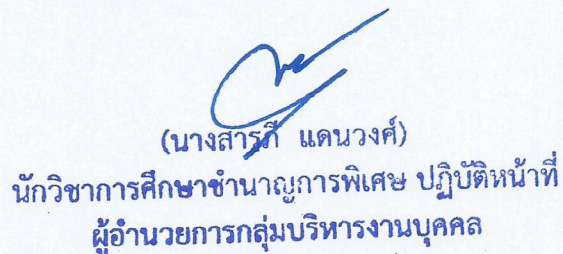 (นางสารภี แดนวงศ์)
นักวิชาการศึกษาชำนาญการพิเศษ ปฏิบัติหน้าที่
ผู้อำนวยการกลุ่มบริหารงานบุคคล